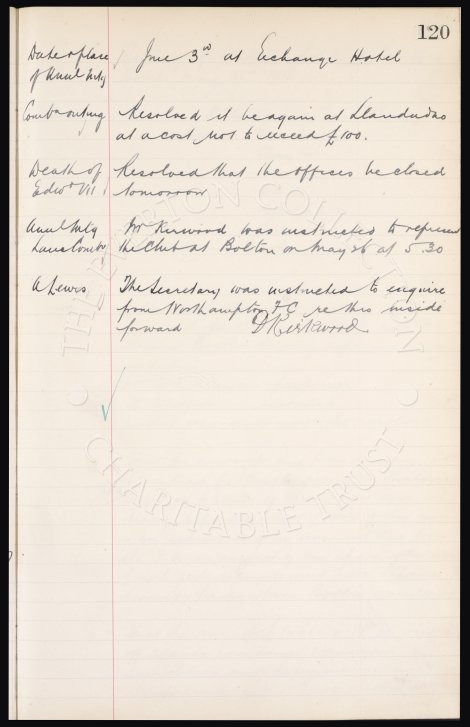 120
Date & place of Anul Mtg June 3rd at Exchange Hotel
Combr outing Resolved it be again at Llandudno
at a cost not to exceed £100.
Death of Resolved that the offices be closed
Edwd VII tomorrow
Anul Mtg Mr Kirwood was instructed to represent
Lancs Combn the Club at Bolton on May 26 at 5.30
A Lewis The Secretary was instructed to enquire
from Northampton F C re this inside
forward D Kirkwood
THE EVERTON COLLECTION
CHARITABLE TRUST